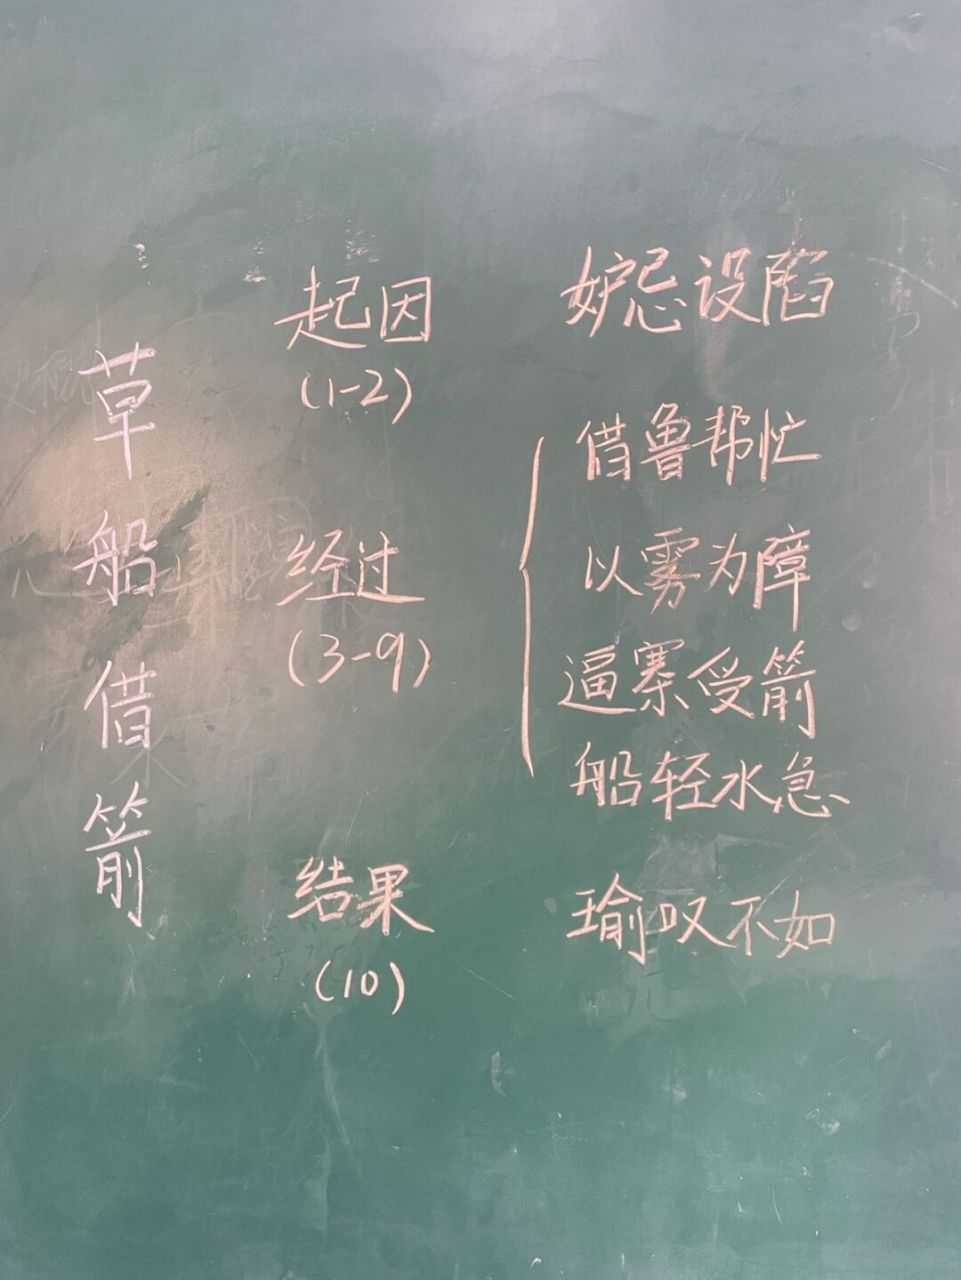 草船借箭
起因
(1-2)
妒忌设陷
经过
(3-9)
借鲁帮忙
以雾为障
逼寨受箭
船轻水急
结果
(10)
瑜叹不如